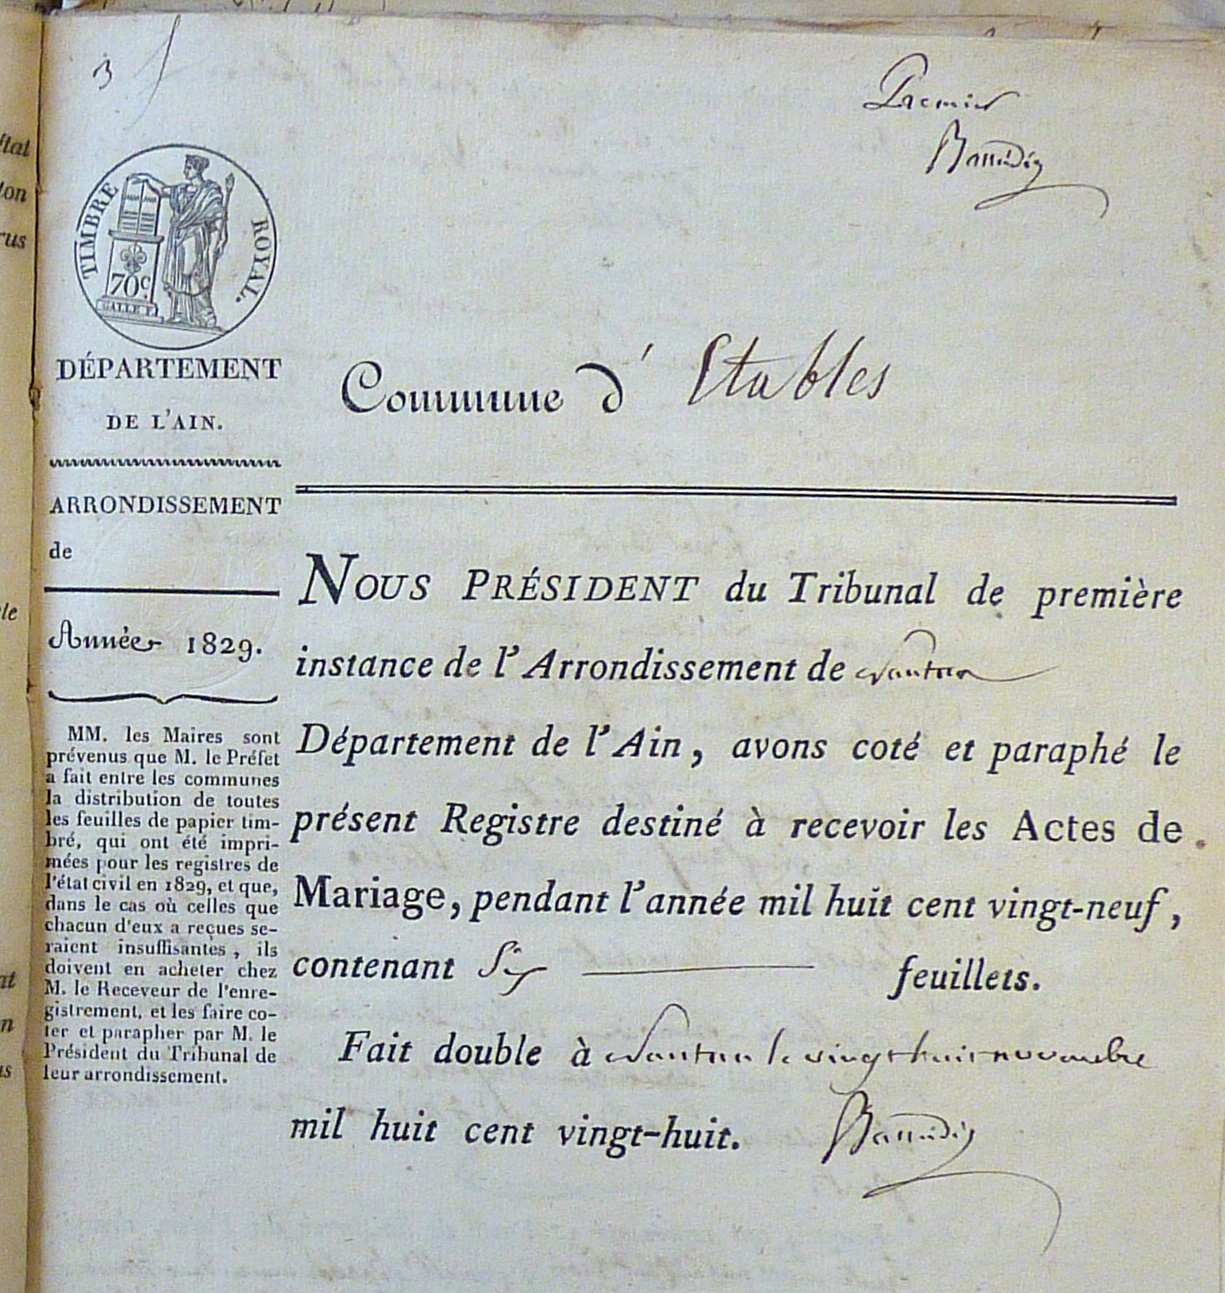 3
Premier
TIMBRE ROYAL.
70c.
DÉPARTEMENT
DE L'AIN.
Commune d' Etables
ARRONDISSEMENT
de
Année 1829.
NOUS PRÉSIDENT du Tribunal de première
instance de l'Arrondissement de Nantua
Département de l'Ain, avons coté et paraphé le
présent Registre destiné à recevoir les Actes de
Mariage, pendant l'année mil huit cent vingt-neuf,
contenant Six feuillets.
Fait double à Nantua le vingt huit novembre
mil huit cent vingt-huit.
MM. les Maires sont
prévenus que M. le Préfet
a fait entre les communes
la distribution de toutes
les feuilles de papier tim-
bré, qui ont été impri-
mées pour les registres de
l'état civil en 1829, et que,
dans le cas où celles que
chacun d'eux a reçues se-
raient insuffisantes, ils
doivent en acheter chez
M. le Receveur de l'enre-
gistrement, et les faire co-
ter et parapher par M. le
Président du Tribunal de
leur arrondissement.